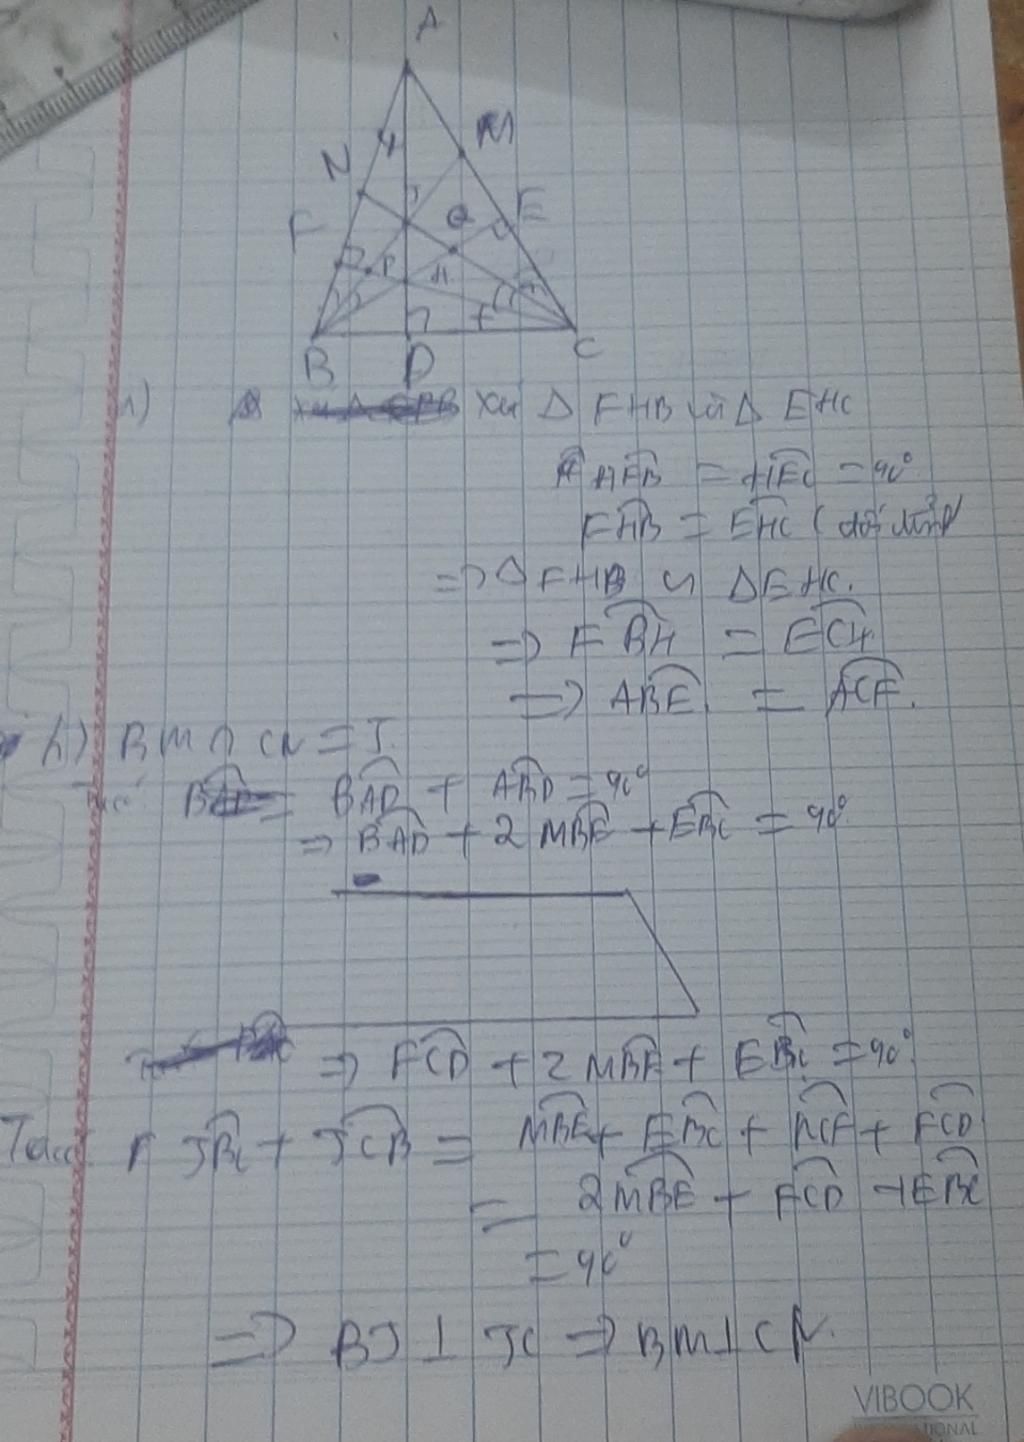 A
N
M
F
Q
E
P
H
B
D
C
Xét Δ FHB và Δ EHC
HFB = HEC = 90°
FHB = EHC (đối đỉnh)
=> Δ FHB ∽ Δ EHC.
=> FBH = ECH
=> ABE = ACF.
b) BM ∩ CN = J.
BAD + ABD = 90°
=> BAD + 2 MBE + EBC = 90°
=> FCD + 2 MBE + EBC = 90°
Ta có JBC + JCB = MBE + EBC + NCF + FCD
= 2 MBE + FCD + EBC
= 90°
=> BJ ⊥ JC => BM ⊥ CN.
VIBOOK